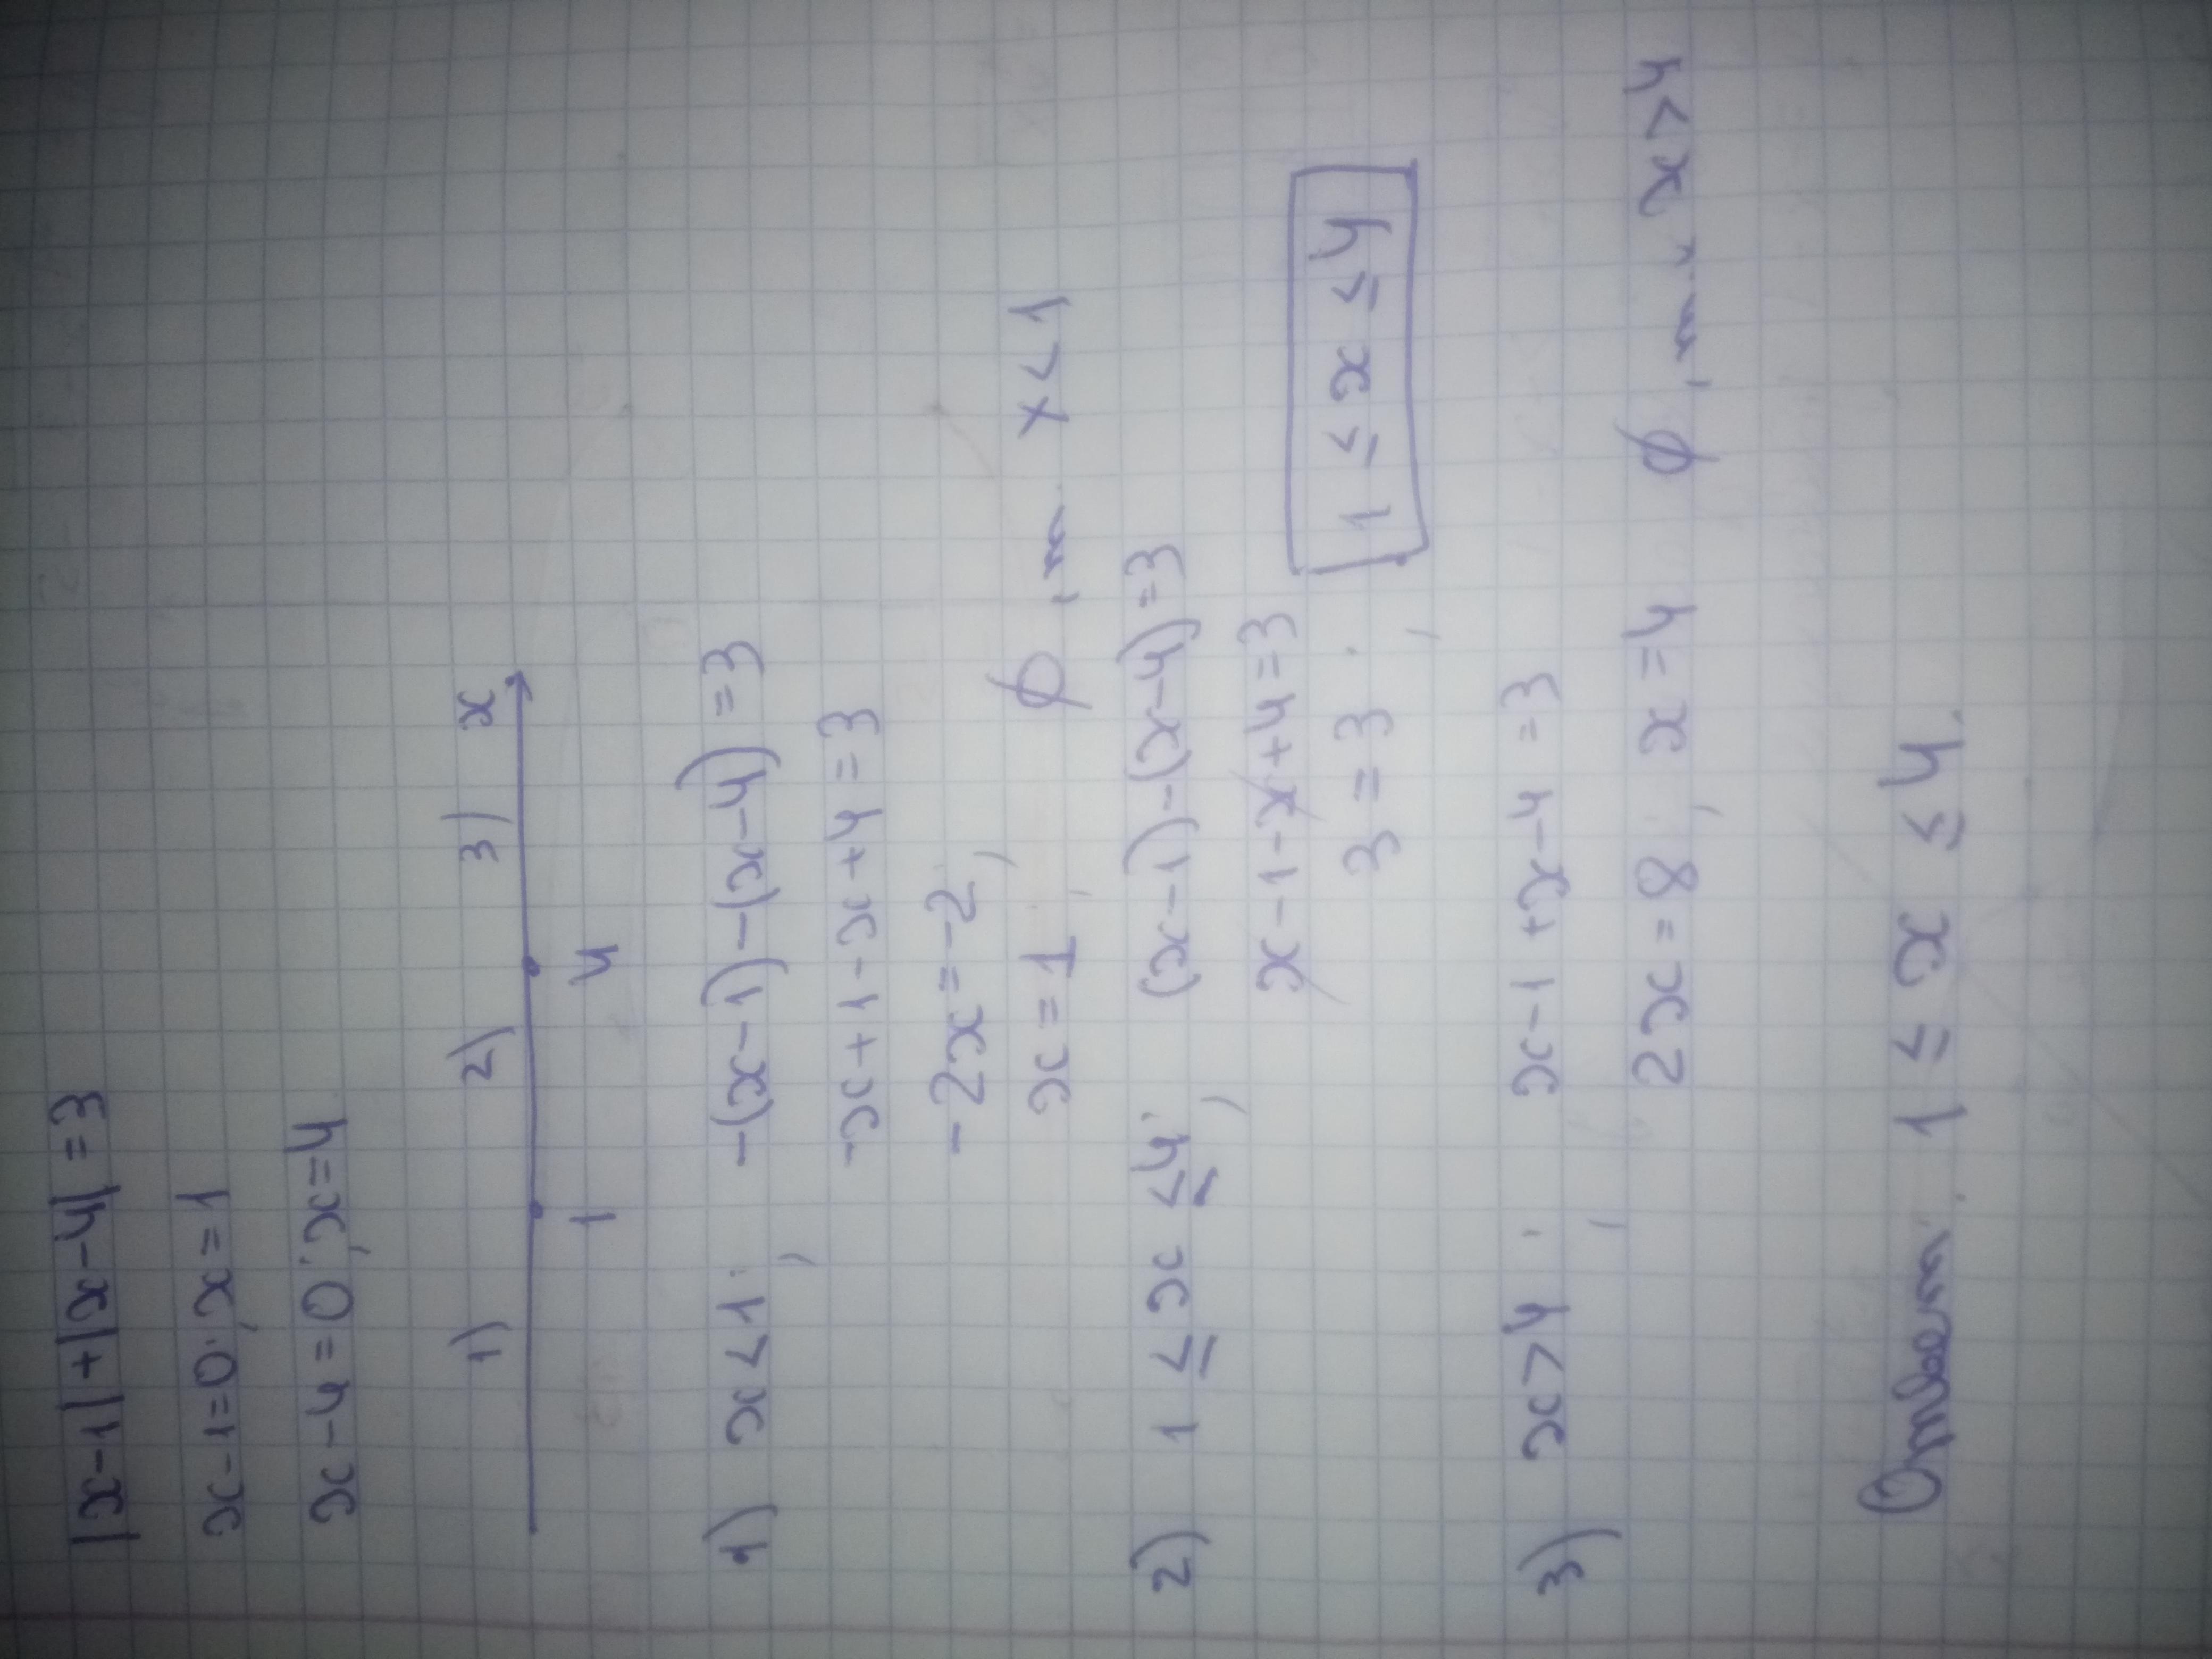 |x-1|+|x-4|=3
x-1=0; x=1
x-4=0; x=4
1) 2) 3) x
1 4
1) x<1; -(x-1)-(x-4)=3
-x+1-x+4=3
-2x=-2;
x=1; ∅, т. x<1
2) 1≤x≤4; (x-1)-(x-4)=3
x-1-x+4=3
3=3; 1≤x≤4
3) x>4; x-1+x-4=3
2x=8, x=4 ∅, т.к. x>4
Ответ. 1≤x≤4.